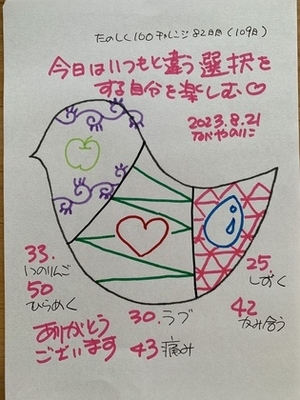 たのしく100チャレンジ82日目(109日)
今日はいつもと違う選択を
する自分を楽しむ♡
2023.8.21
33.
いのりんご
50
ひらめく
ありがとう
ございます
30.ラブ
43 痛み
25.
しずく
42